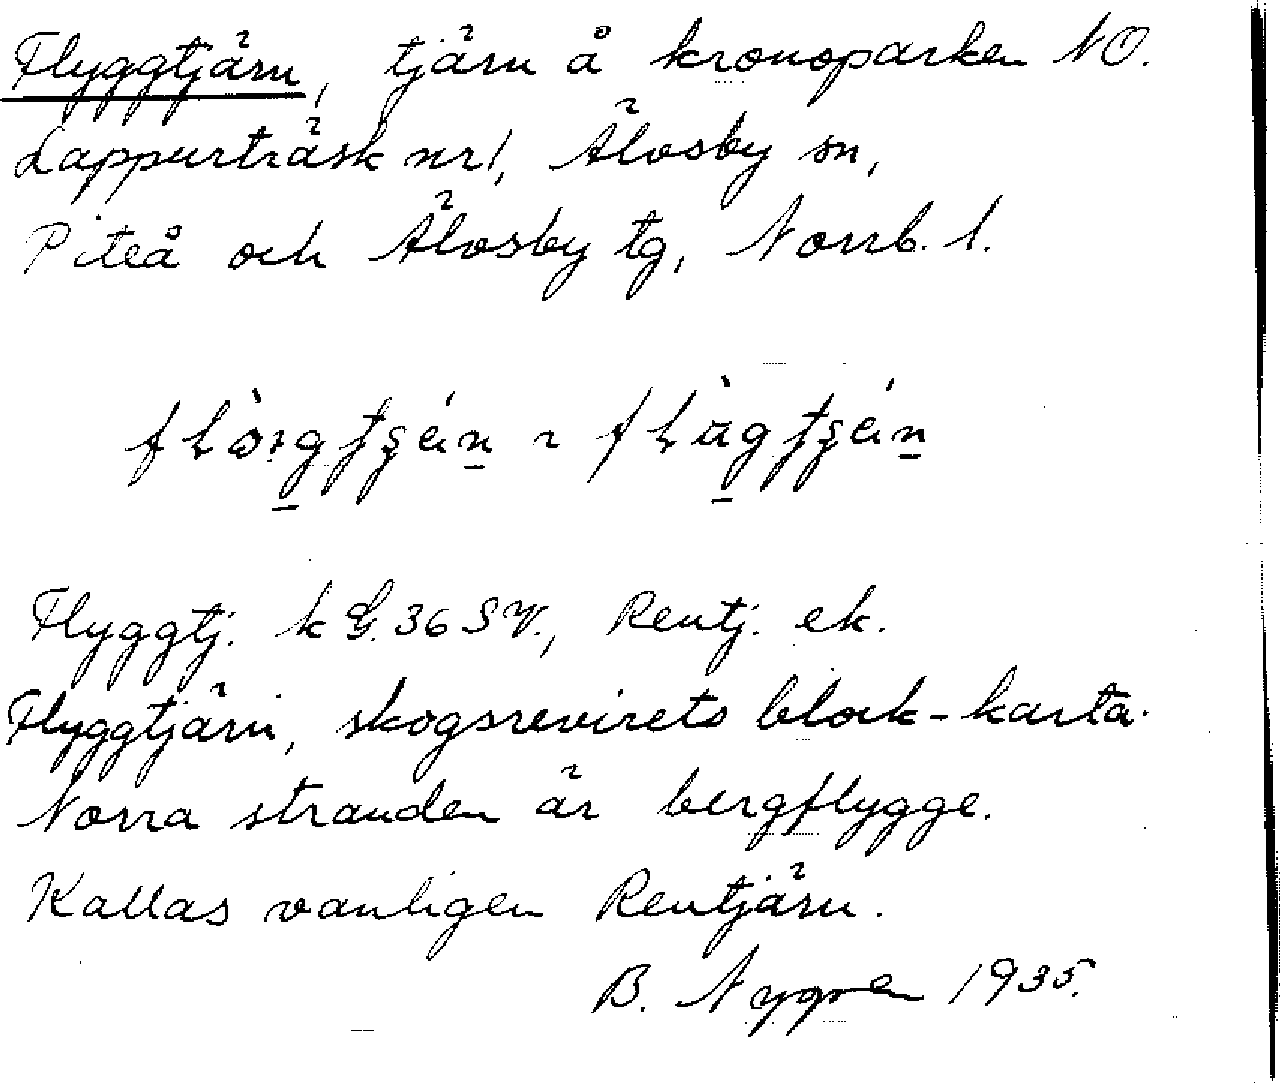 Flyggtjärn, tjärn å kronoparken NO.
Lappurträsk nr1, Älvsby sn,
Piteå och Älvsby tg, Norrb. l.
Flyggtj. k G. 36 SV., Rentj. ek.
Flyggtjärn, skogsrevirets block-karta.
Norra stranden är bergflygge.
Kallas vanligen Rentjärn.
B. Nygren 1935.